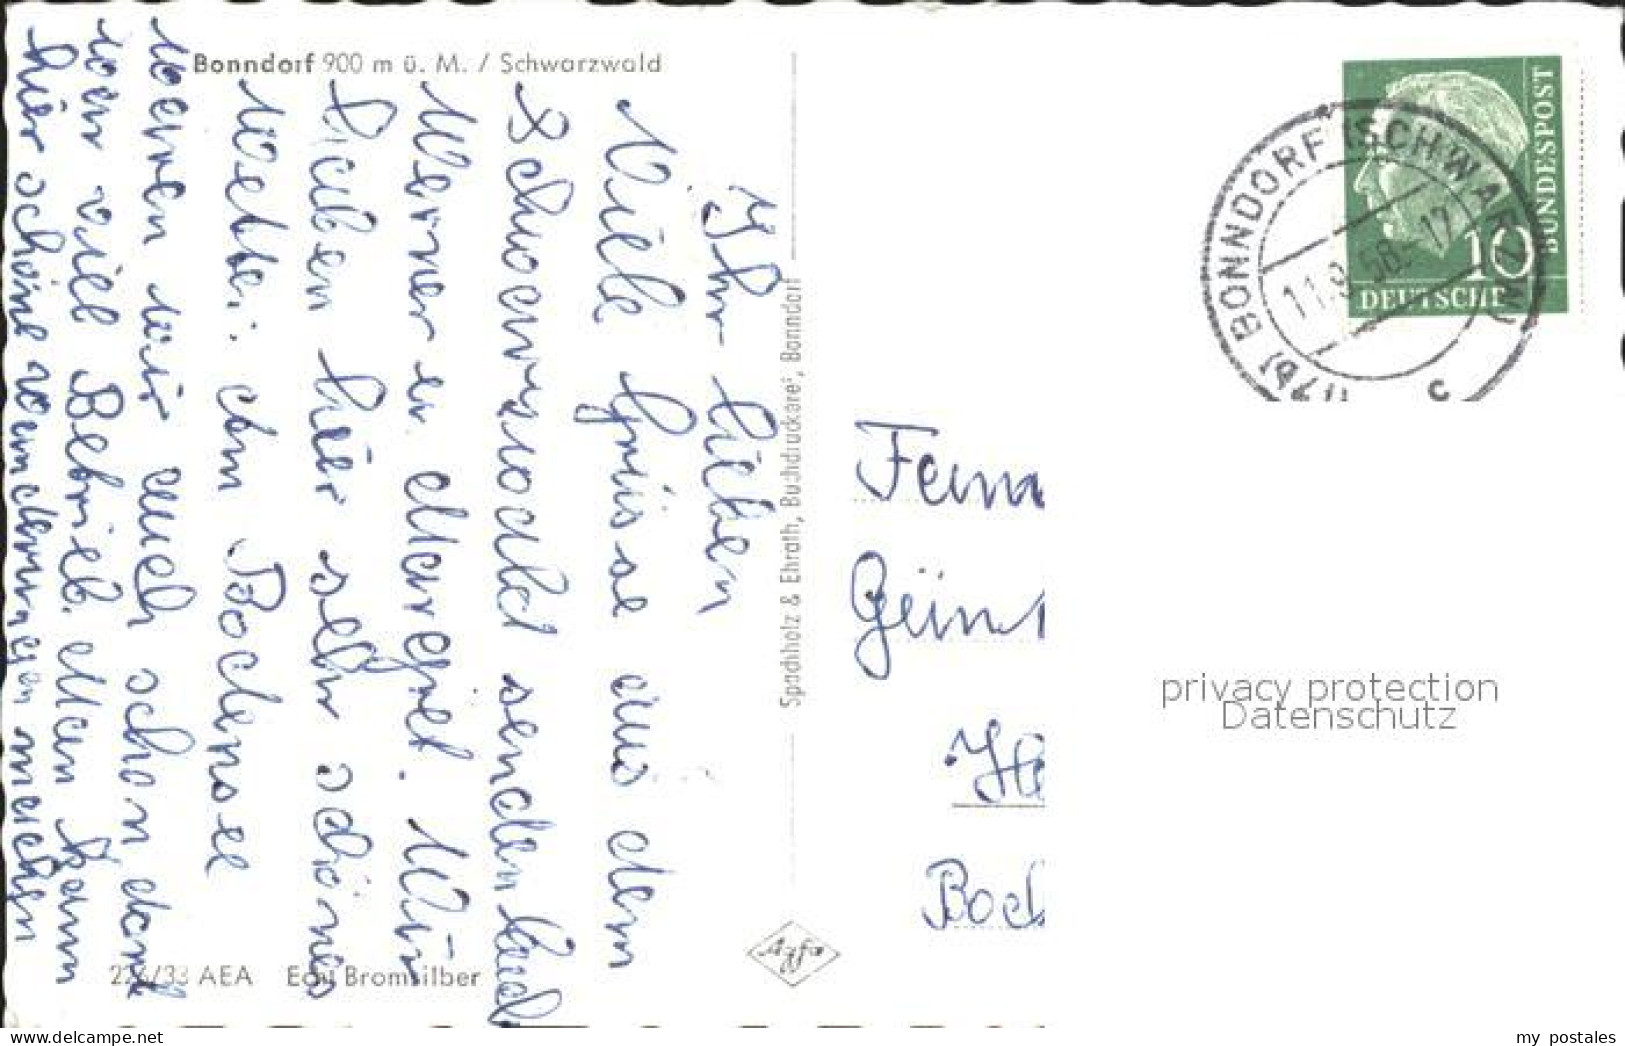 Bonndorf 900 m ü. M. / Schwarzwald
Ihr lieben
Viele Grüsse aus dem
Schwarzwald senden Euch
Werner u. Margret. Wir
haben hier sehr schönes
Wetter. Am Bodensee
waren wir auch schon dort
war viel Betrieb. Man kann
hier schöne Wanderungen machen
226/33 AEA Echt Bromsilber
Spachholz & Ehrath, Buchdruckerei, Bonndorf
Agfa
BUNDESPOST
10
DEUTSCHE
(17b) BONNDORF (SCHWARZW)
11.9.58.-17
c
Fam
Günt
He
Boch
privacy protection
Datenschutz
my postales